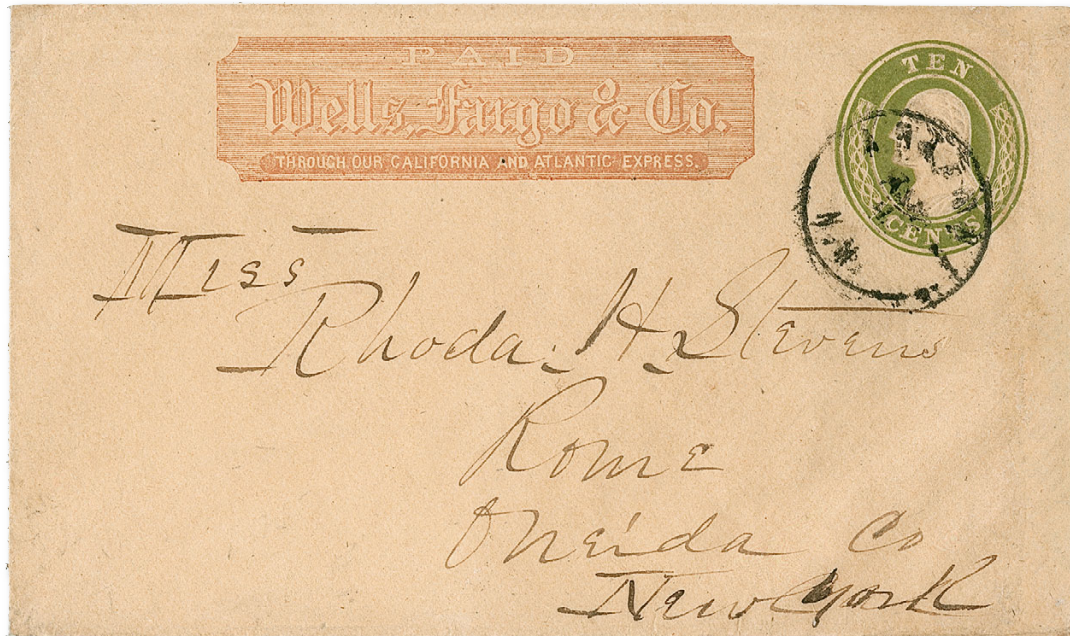 PAID
Wells, Fargo & Co.
THROUGH OUR CALIFORNIA AND ATLANTIC EXPRESS.
TEN
CENTS
Miss
Rhoda. H. Stevens
Rome
Oneida Co
New York